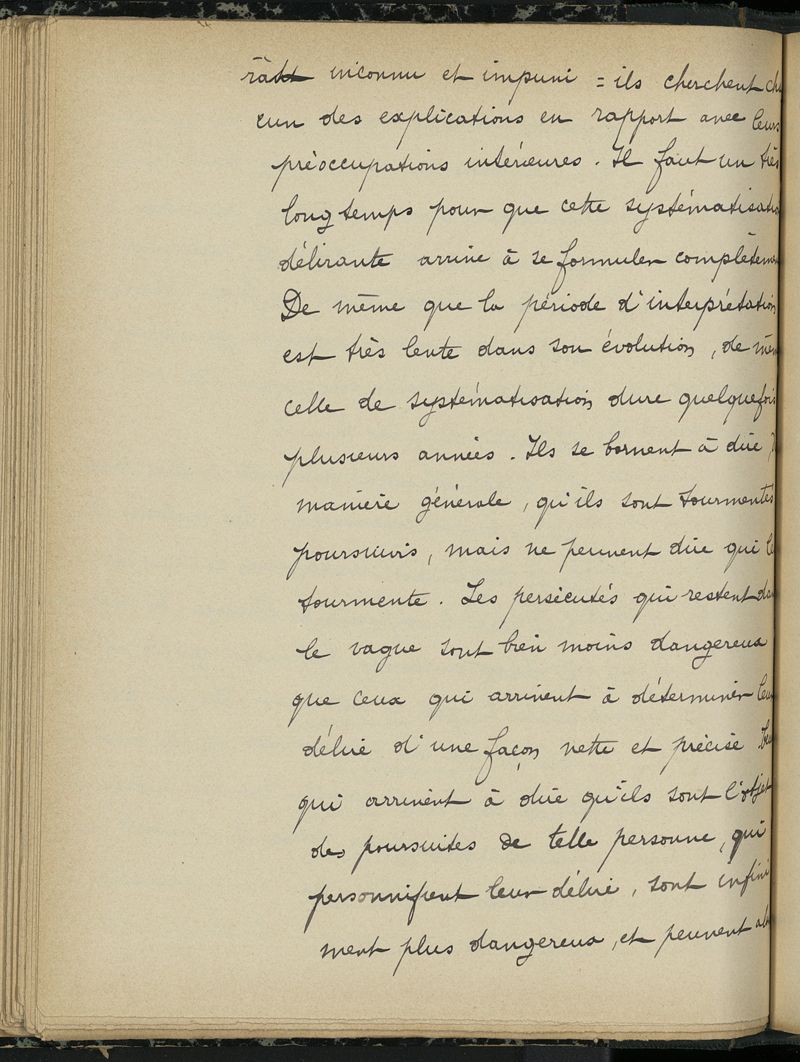 rât inconnu et impuni = ils cherchent cha
cun des explications en rapport avec leurs
préoccupations intérieures. Il faut un très
long temps pour que cette systématisation
délirante arrive à se formuler complètemen
De même que la période d'interprétation
est très lente dans son évolution, de mêm
celle de systématisation dure quelquefois
plusieurs années. Ils se bornent à dire
manière générale, qu'ils sont tourmentés
poursuivis, mais ne peuvent dire qui le
tourmente. Les persécutés qui restent dan
le vague sont bien moins dangereux
que ceux qui arrivent à déterminer leur
délire d'une façon nette et précise.
qui arrivent à dire qu'ils sont l'objet
des poursuites de telle personne, qui
personnifient leur délire, sont infini
ment plus dangereux, et peuvent